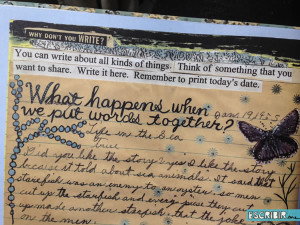 WHY DON'T YOU WRITE?
You can write about all kinds of things. Think of something that you
want to share. Write it here. Remember to print today's date.
What happens when
we put words together?
Life in the Sea
Did you like the story? yes I like the story
because it told about sea animals. It said that
starfish was an enemy to an oyster. men
cut up the starfish and every piece they cut
up made another starfish that the joke
on the men.